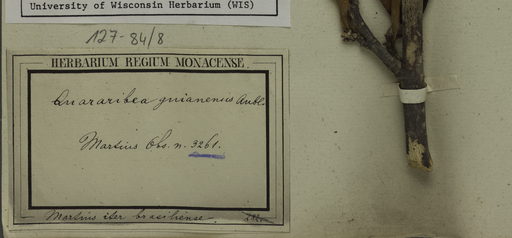 University of Wisconsin Herbarium (WIS)
127-84/8
HERBARIUM REGIUM MONACENSE.
Quararibea guianensis Aubl.
Martius Obs. n. 3261.
Martius iter brasiliense.